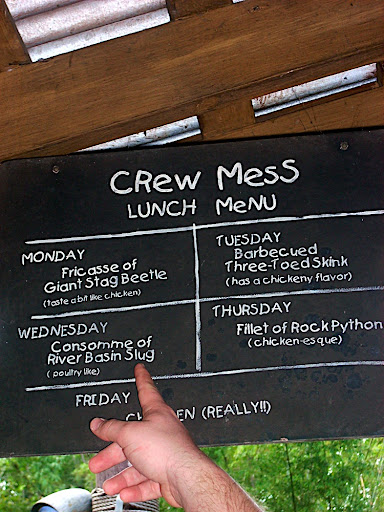 CREW MESS
LUNCH MENU
MONDAY
Fricasse of
Giant Stag Beetle
(taste a bit like chicken)
TUESDAY
Barbecued
Three-Toed Skink
(has a chickeny flavor)
WEDNESDAY
Consomme of
River Basin Slug
(poultry like)
THURSDAY
Fillet of Rock Python
(chicken-esque)
FRIDAY
(REALLY!!)